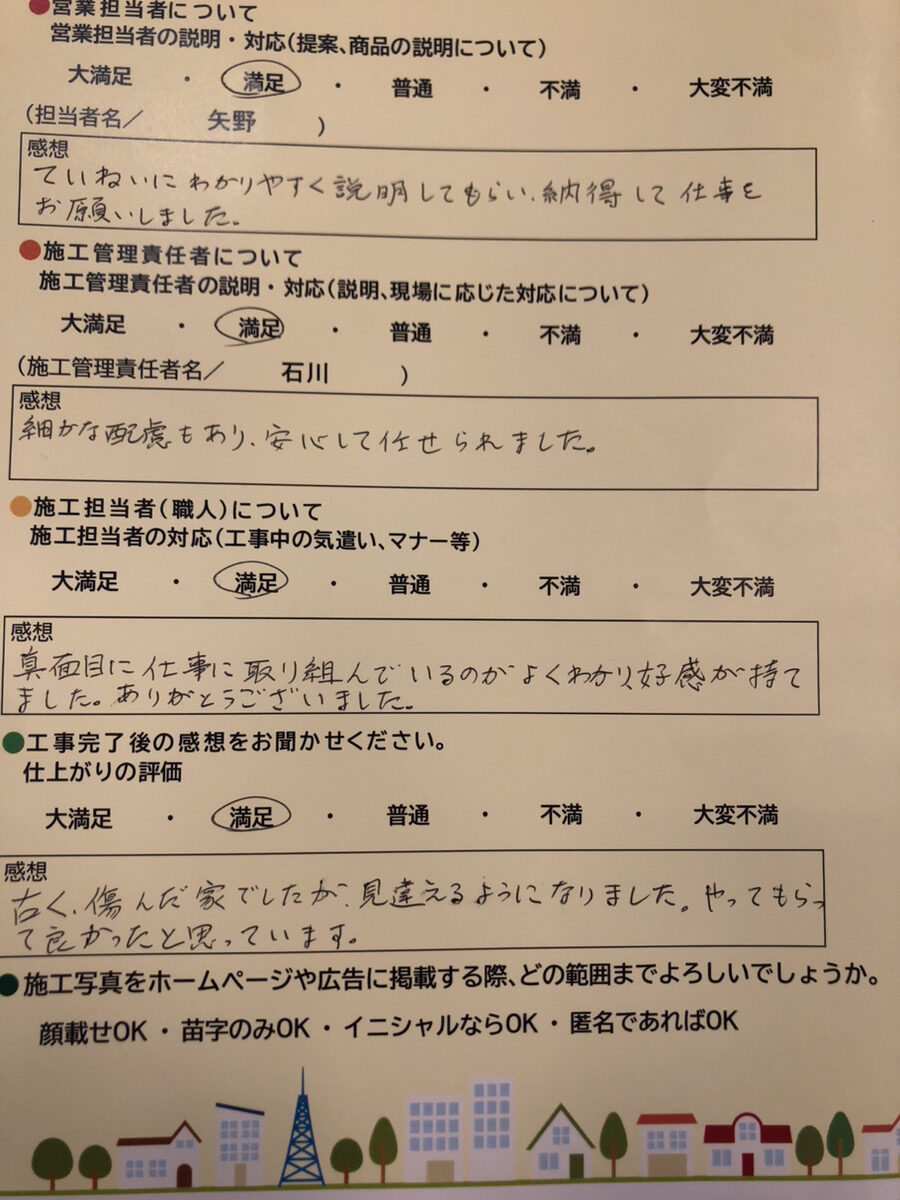 ●営業担当者について
営業担当者の説明・対応(提案、商品の説明について)
大満足 ・ 満足 ・ 普通 ・ 不満 ・ 大変不満
(担当者名／ 矢野 )
感想
ていねいにわかりやすく説明してもらい、納得して仕事を
お願いしました。
●施工管理責任者について
施工管理責任者の説明・対応(説明、現場に応じた対応について)
大満足 ・ 満足 ・ 普通 ・ 不満 ・ 大変不満
(施工管理責任者名／ 石川 )
感想
細かな配慮もあり、安心して任せられました。
●施工担当者(職人)について
施工担当者の対応(工事中の気遣い、マナー等)
大満足 ・ 満足 ・ 普通 ・ 不満 ・ 大変不満
感想
真面目に仕事に取り組んでいるのがよくわかり、好感が持て
ました。ありがとうございました。
●工事完了後の感想をお聞かせください。
仕上がりの評価
大満足 ・ 満足 ・ 普通 ・ 不満 ・ 大変不満
感想
古く、傷んだ家でしたが、見違えるようになりました。やってもらっ
て良かったと思っています。
●施工写真をホームページや広告に掲載する際、どの範囲までよろしいでしょうか。
顔載せOK・苗字のみOK・イニシャルならOK・匿名であればOK